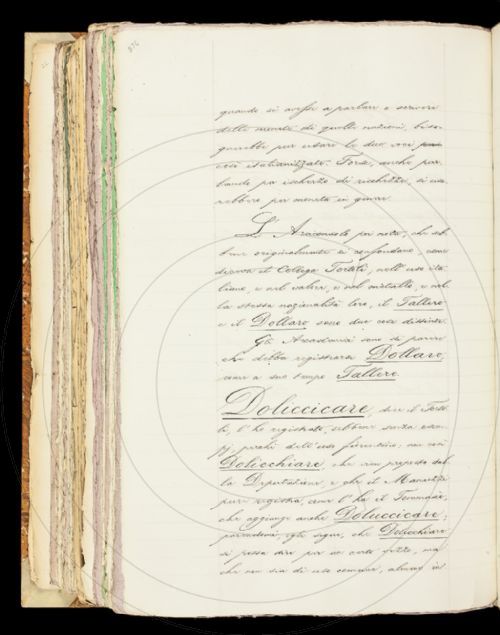 876
quando si avesse a parlare o scrivere
delle monete di quelle nazioni, biso-
gnerebbe pur usare le due voci
così italianizzate. Forse, anche par-
lando per ischerzo di ricchezze, si use-
rebbero per moneta in genere.
L'Arciconsolo poi nota, che seb-
bene originalmente si confondano, come
diceva il Collega Tortoli, nell'uso ita-
liano, e nel valore, e nel metallo, e nel-
la stessa nazionalità loro, il Tallero
e il Dollaro sono due cose distinte.
Gli Accademici sono di parere
che debba registrarsi Dollaro,
come a suo tempo Tallero.
Doliccicare, dice il Torto-
li, l'ho registrato, sebbene senza esem-
pj, perchè dell'uso fiorentino; non così
Dolicchiare, che vien proposto dal-
la Deputazione, e che il Manuzzi
pure registra, come l'ha il Tommaseo,
che aggiunge anche Doluccicare;
parendomi, egli segue, che Dolicchiare
si possa dire per un certo fatto, ma
che non sia di uso comune, almeno in